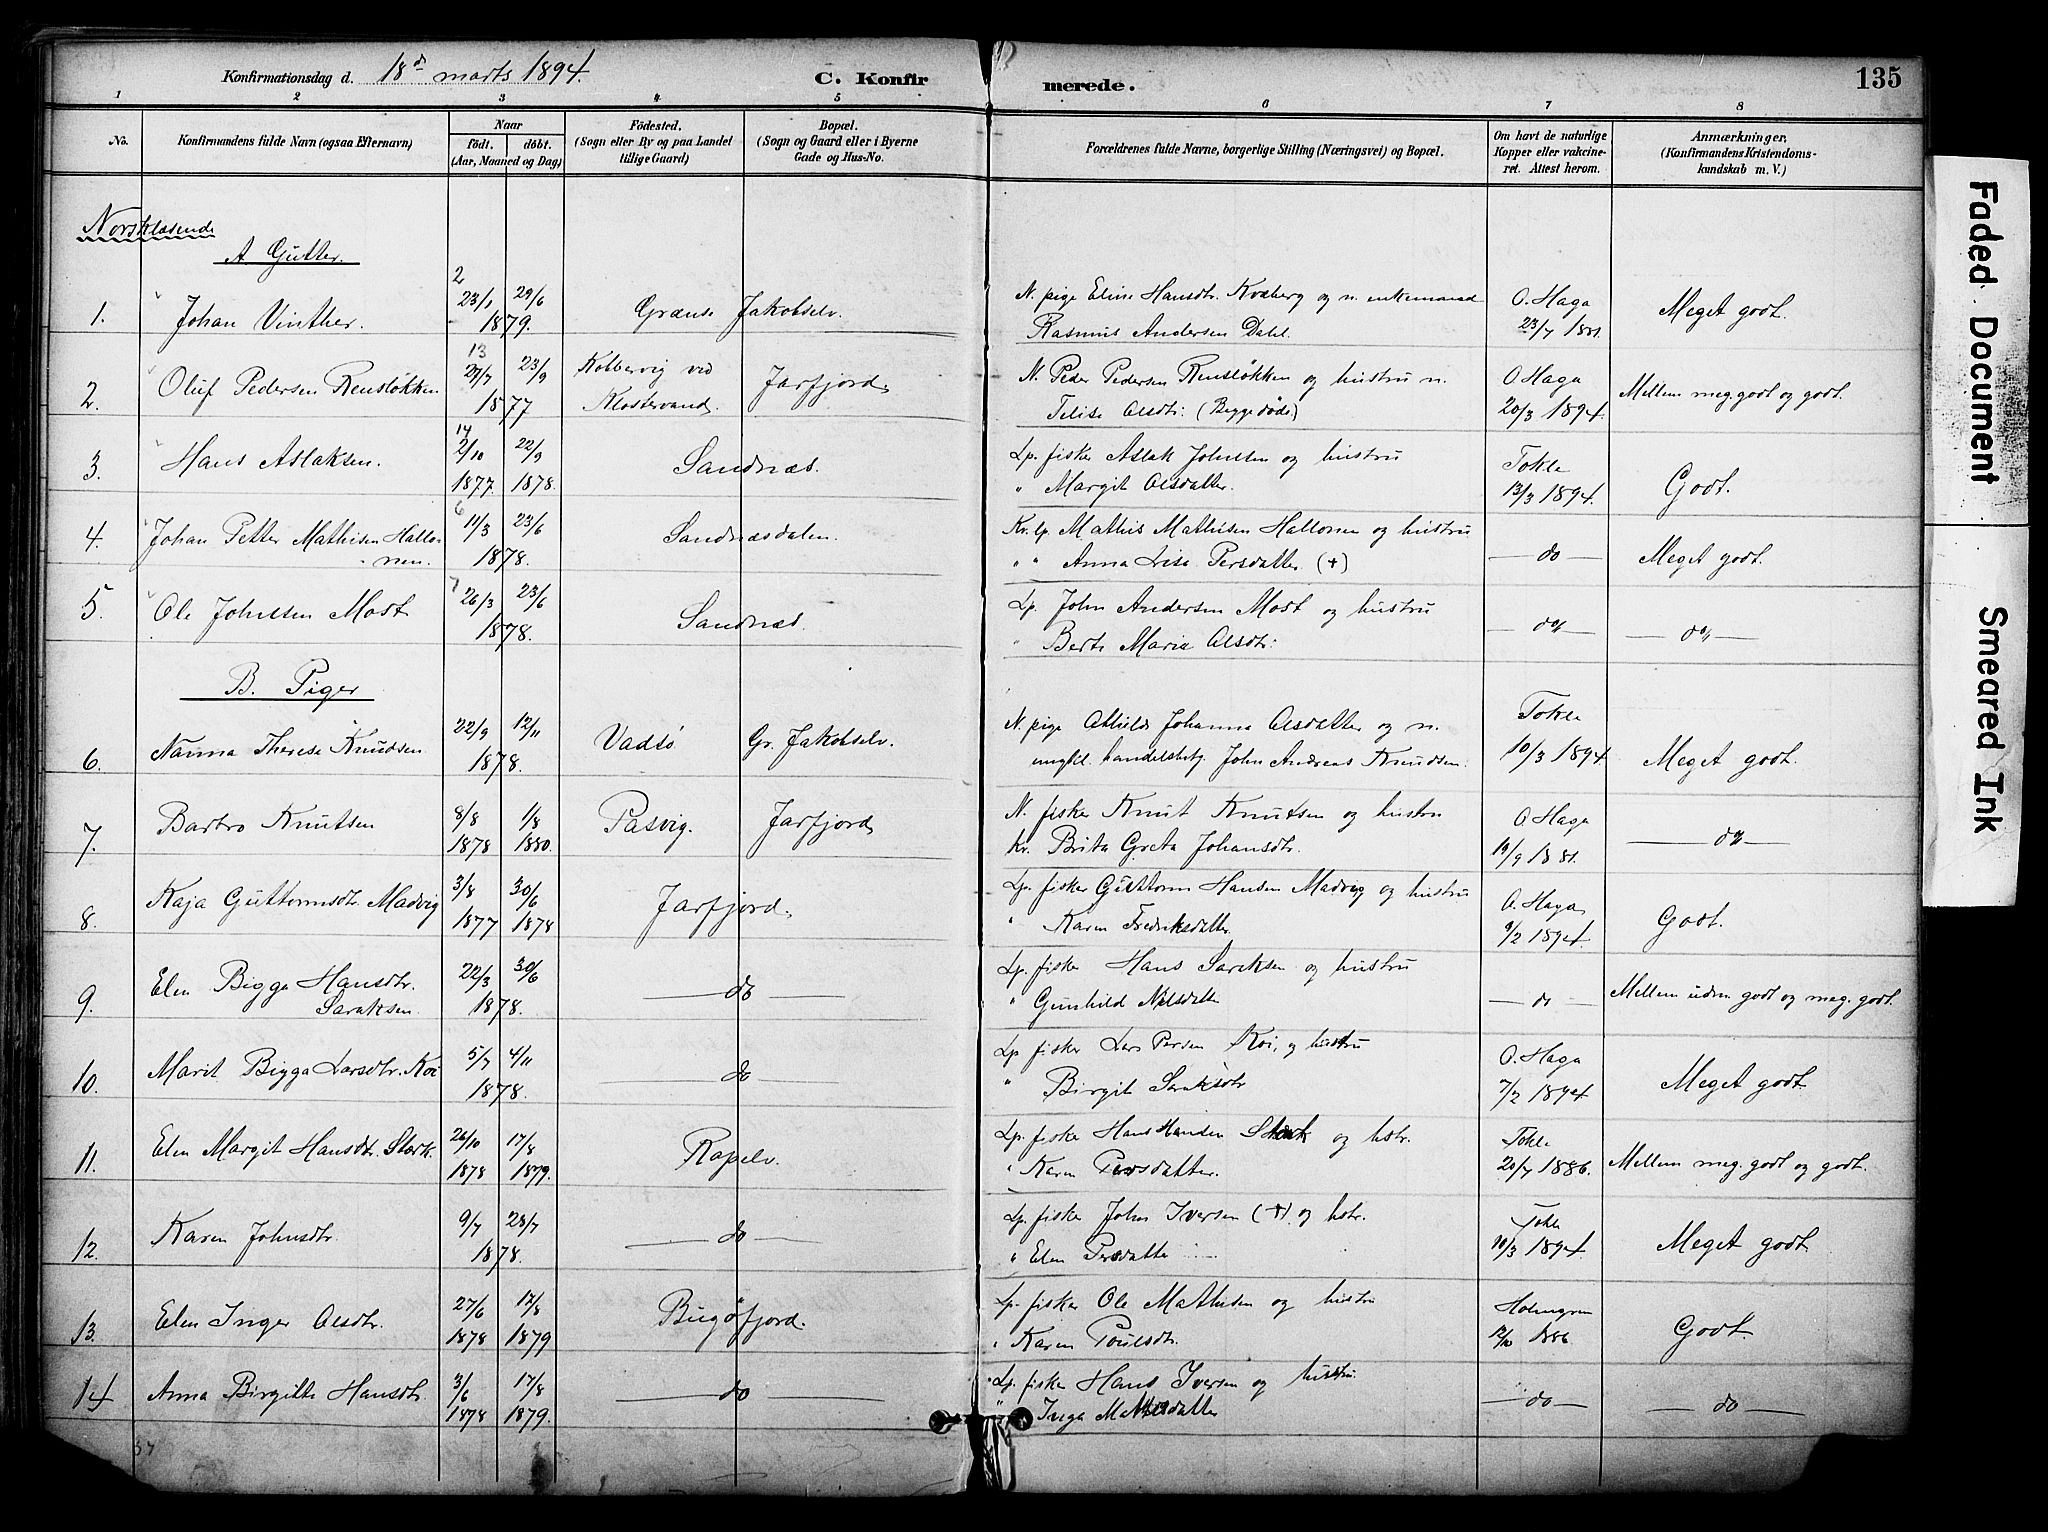 Konfirmationsdag d. 18d marts 1894. C. Konfirmerede. 135
1 2 3 4 5 6 7 8
No. Konfirmandens fulde Navn (ogsaa Efternavn) Naar født. døbt. (Aar, Maaned og Dag) Fødested. (Sogn eller By og paa Landet tillige Gaard) Bopæl. (Sogn og Gaard eller i Byerne Gade og Hus-No. Forældrenes fulde Navne, borgerlige Stilling (Næringsvei) og Bopæl. Om havt de naturlige Kopper eller vakcineret. Attest herom. Anmærkninger, (Konfirmandens Kristendomskundskab m. V.)
Norsklæsende
A. Gutter.
2
1. Johan Vinther. 23/1 29/6 Grænse Jakobselv. N. pige Eline Hansdtr. Kvæberg og n. enkemand O. Haga Meget godt.
1879. Rasmus Andersen Dahl. 23/7 1881.
13
2. Oluf Pedersen Rensløkken 27/7 23/9 Kobbervig ved Jarfjord. N. Peder Pedersen Rensløkken og hustru n. O. Haga Mellem meg. godt og godt.
1877 Klostervand. Olsdtr: (Begge døde) 20/3 1894.
14
3. Hans Aslaksen. 2/10 22/9 Sandnæs. Lp. fisker Aslak Johnsen og hustru Tokle Godt.
1877. 1878. " Margit Olsdatter. 13/3 1894.
6
4. Johan Petter Mathisen Hallo- 11/3 23/6 Sandnæsdalen. Kv. lp. Mathis Mathisen Hallonen og hustru do Meget godt.
nen. 1878. " " Anna Lisa Persdatter (+)
7
5. Ole Johnsen Most 26/3 23/6 Sandnæs. Lp. John Andersen Most og hustru do do
1878. " Berit Maria Olsdtr:
B. Piger
6. Nanna Therese Knudsen 22/9 12/11 Vadsø Gr. Jakobselv. N. pige Johanna Olsdatter og n. Tokle Meget godt.
1878. ungk. handelsbetj. John Andreas Knudsen. 10/3 1894
7. Barbro Knutsen 8/8 1/8 Pasvig. Jarfjord N. fisker Knut Knutsen og hustru O. Haga do
1878 1880. kv. Brita Greta Johansdtr. 19/9 1881.
8. Kaja Guttormsdt. Madvig 3/8 30/6 Jarfjord. Lp. fisker Guttorm Hansen Madvig og hustru O. Haga Godt.
1877 1878 " Karen Fredriksdatter. 9/2 1894.
9. Elen Bigga Hansdtr. 22/3 30/6 do Lp. fisker Hans Sareksen og hustru do Mellem udm. godt og meg. godt.
Sareksen. 1878. " Gunhild Nilsdatter
10. Marit Bigga Larsdtr. Koi 5/7 4/11 do Lp fisker Lars Persen Koi, og hustru O. Haga Meget godt
1878. " Birgit Sareksdtr 7/2 1894
11. Elen Margit Hansdt. Stærk. 26/10 17/8 Ropelv Lp. fisker Hans Hansen Stærk og hstr. Tokle Mellem meg. godt og godt.
1878 1879. " Karen Persdatter. 20/7 1886.
12. Karen Johnsdtr. 9/7 28/7 do Lp. fisker John Iversen (+) og hstr. Tokle Meget godt
1878. " Elen Persdatter 10/3 1894
13. Elen Inger Olsdtr. 27/6 17/8 Bugøfjord. Lp. fisker Ole Mathisen og hustru Holmgren Godt.
1878 1879 " Karen Poulsdtr. 12/10 1886
14 Anna Birgitte Hansdtr. 3/6 17/8 do Lp. fisker Hans Iversen og hustru do do
1878 1879. " Inga Mathisdatter
37
Faded Document
Smeared Ink